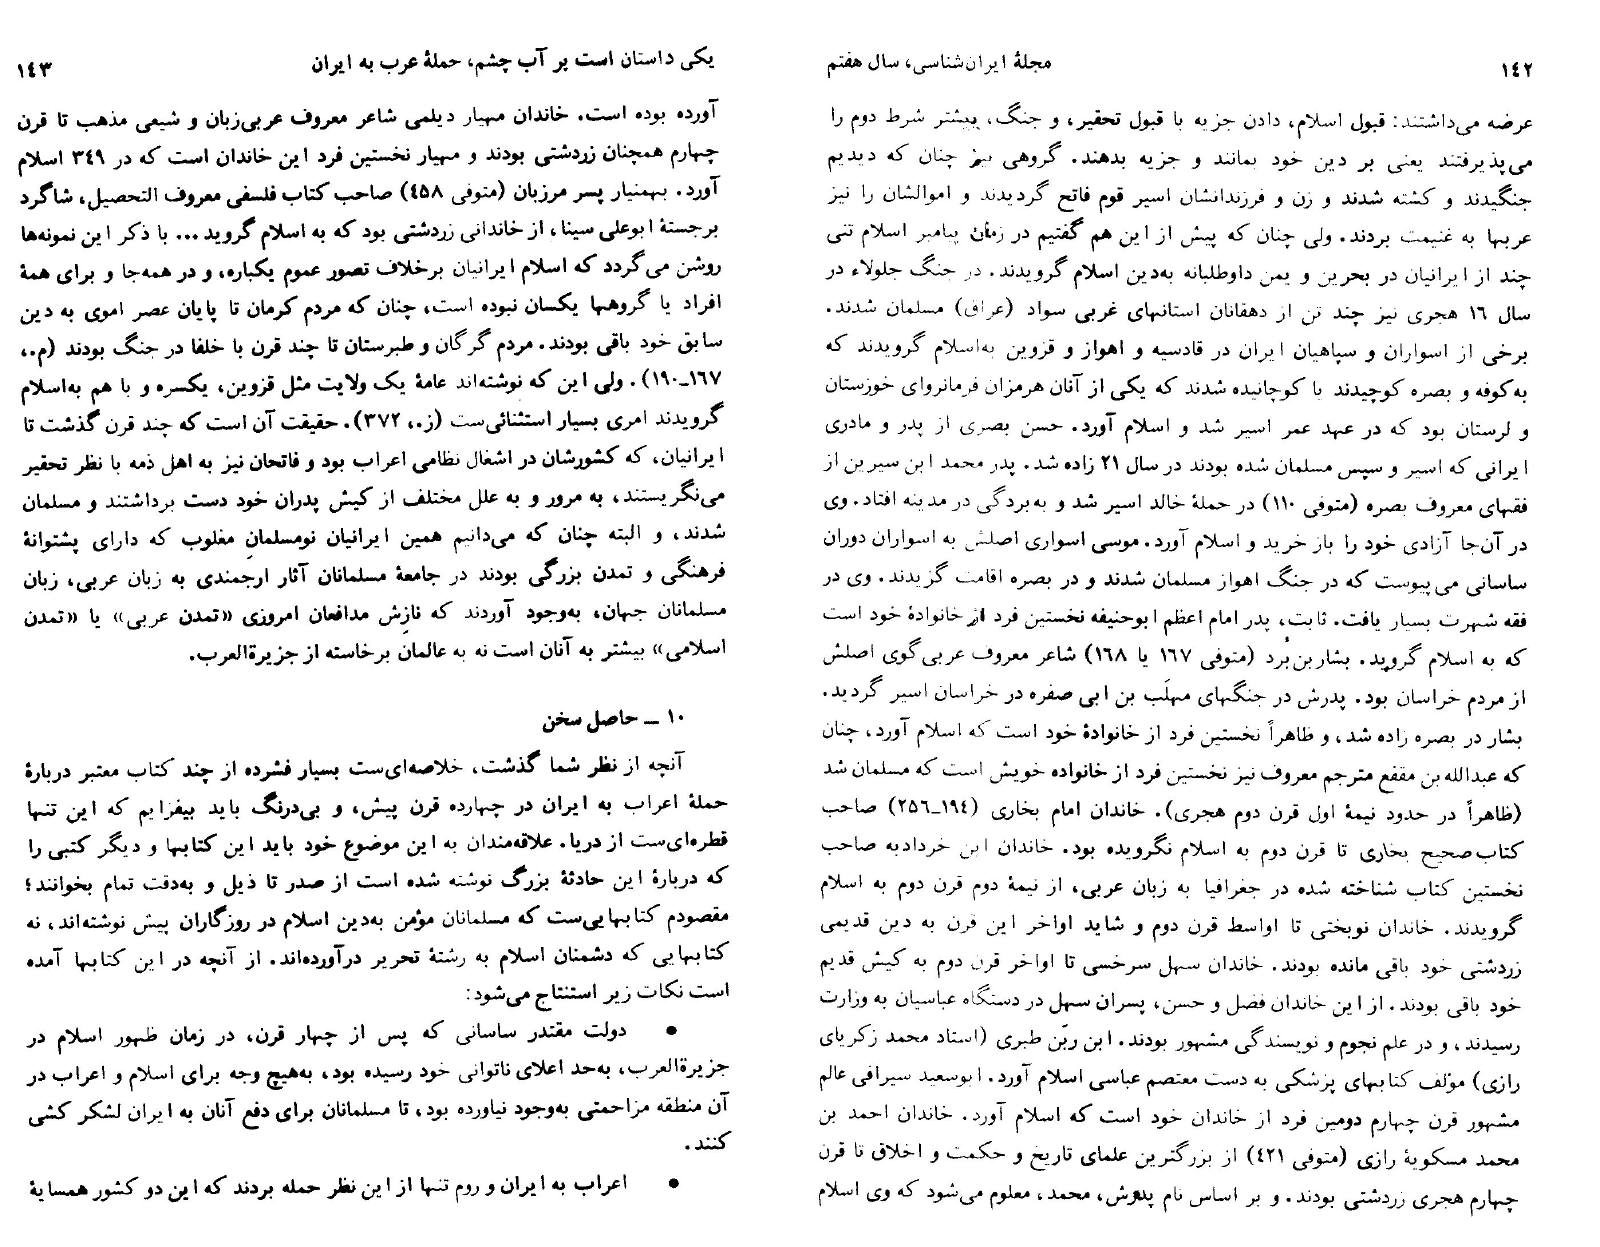 ۱۴۲
مجلهٔ ایران‌شناسی، سال هفتم
عرضه می‌داشتند: قبول اسلام، دادن جزیه با قبول تحقیر، و جنگ، پیشتر شرط دوم را
می‌پذیرفتند یعنی بر دین خود بمانند و جزیه بدهند. گروهی نیز چنان که دیدیم
جنگیدند و کشته شدند و زن و فرزندانشان اسیر قوم فاتح گردیدند و اموالشان را نیز
عربها به غنیمت بردند. ولی چنان که پیش از این هم گفتیم در زمان پیامبر اسلام تنی
چند از ایرانیان در بحرین و یمن داوطلبانه به‌دین اسلام گرویدند. در جنگ جلولاء در
سال ۱۶ هجری نیز چند تن از دهقانان استانهای غربی سواد (عراق) مسلمان شدند.
برخی از اسواران و سپاهیان ایران در قادسیه و اهواز و قزوین به‌اسلام گرویدند که
به‌کوفه و بصره کوچیدند یا کوچانیده شدند که یکی از آنان هرمزان فرمانروای خوزستان
و لرستان بود که در عهد عمر اسیر شد و اسلام آورد. حسن بصری از پدر و مادری
ایرانی که اسیر و سپس مسلمان شده بودند در سال ۲۱ زاده شد. پدر محمد ابن سیرین از
فقهای معروف بصره (متوفی ۱۱۰) در حملهٔ خالد اسیر شد و به‌بردگی در مدینه افتاد. وی
در آن‌جا آزادی خود را باز خرید و اسلام آورد. موسی اسواری اصلش به اسواران دوران
ساسانی می‌پیوست که در جنگ اهواز مسلمان شدند و در بصره اقامت گزیدند. وی در
فقه شهرت بسیار یافت. ثابت، پدر امام اعظم ابوحنیفه نخستین فرد از خانوادهٔ خود است
که به اسلام گروید. بشاربن‌بُرد (متوفی ۱۶۷ یا ۱۶۸) شاعر معروف عربی‌گوی اصلش
از مردم خراسان بود. پدرش در جنگهای مهلَب بن ابی صفره در خراسان اسیر گردید.
بشار در بصره زاده شد، و ظاهراً نخستین فرد از خانوادهٔ خود است که اسلام آورد، چنان
که عبدالله بن مقفع مترجم معروف نیز نخستین فرد از خانواده خویش است که مسلمان شد
(ظاهراً در حدود نیمهٔ اول قرن دوم هجری). خاندان امام بخاری (۱۹۴ـ۲۵۶) صاحب
کتاب صحیح بخاری تا قرن دوم به اسلام نگرویده بود. خاندان ابن خردادبه صاحب
نخستین کتاب شناخته شده در جغرافیا به زبان عربی، از نیمهٔ دوم قرن دوم به اسلام
گرویدند. خاندان نوبختی تا اواسط قرن دوم و شاید اواخر این قرن به دین قدیمی
زردشتی خود باقی مانده بودند. خاندان سهل سرخسی تا اواخر قرن دوم به کیش قدیم
خود باقی بودند. از این خاندان فضل و حسن، پسران سهل در دستگاه عباسیان به وزارت
رسیدند، و در علم نجوم و نویسندگی مشهور بودند. ابن ربّن طبری (استاد محمد زکریای
رازی) مؤلف کتابهای پزشکی به دست معتصم عباسی اسلام آورد. ابوسعید سیرافی عالم
مشهور قرن چهارم دومین فرد از خاندان خود است که اسلام آورد. خاندان احمد بن
محمد مسکویهٔ رازی (متوفی ۴۲۱) از بزرگترین علمای تاریخ و حکمت و اخلاق تا قرن
چهارم هجری زردشتی بودند. و بر اساس نام پدرش، محمد، معلوم می‌شود که وی اسلام
یکی داستان است بر آب چشم، حملهٔ عرب به ایران
۱۴۳
آورده بوده است. خاندان مهیار دیلمی شاعر معروف عربی‌زبان و شیعی مذهب تا قرن
چهارم همچنان زردشتی بودند و مهیار نخستین فرد این خاندان است که در ۳۴۹ اسلام
آورد. بهمنیار پسر مرزبان (متوفی ۴۵۸) صاحب کتاب فلسفی معروف التحصیل، شاگرد
برجستهٔ ابوعلی سینا، از خاندانی زردشتی بود که به اسلام گروید ... با ذکر این نمونه‌ها
روشن می‌گردد که اسلام ایرانیان برخلاف تصور عموم یکباره، و در همه‌جا و برای همهٔ
افراد یا گروهها یکسان نبوده است، چنان که مردم کرمان تا پایان عصر اموی به دین
سابق خود باقی بودند. مردم گرگان و طبرستان تا چند قرن با خلفا در جنگ بودند (م.،
۱۶۷ـ۱۹۰). ولی این که نوشته‌اند عامهٔ یک ولایت مثل قزوین، یکسره و با هم به‌اسلام
گرویدند امری بسیار استثنائی‌ست (ز.، ۳۷۲). حقیقت آن است که چند قرن گذشت تا
ایرانیان، که کشورشان در اشغال نظامی اعراب بود و فاتحان نیز به اهل ذمه با نظر تحقیر
می‌نگریستند، به مرور و به علل مختلف از کیش پدران خود دست برداشتند و مسلمان
شدند، و البته چنان که می‌دانیم همین ایرانیان نومسلمانِ مغلوب که دارای پشتوانهٔ
فرهنگی و تمدن بزرگی بودند در جامعهٔ مسلمانان آثار ارجمندی به زبان عربی، زبان
مسلمانان جهان، به‌وجود آوردند که نازِش مدافعان امروزی «تمدن عربی» یا «تمدن
اسلامی» بیشتر به آنان است نه به عالمان برخاسته از جزیرةالعرب.
۱۰ ـ حاصل سخن
آنچه از نظر شما گذشت، خلاصه‌ای‌ست بسیار فشرده از چند کتاب معتبر دربارهٔ
حملهٔ اعراب به ایران در چهارده قرن پیش، و بی‌درنگ باید بیفزایم که این تنها
قطره‌ای‌ست از دریا. علاقه‌مندان به این موضوع خود باید این کتابها و دیگر کتبی را
که دربارهٔ این حادثهٔ بزرگ نوشته شده است از صدر تا ذیل و به‌دقت تمام بخوانند؛
مقصودم کتابهایی‌ست که مسلمانان مؤمن به‌دین اسلام در روزگاران پیش نوشته‌اند، نه
کتابهایی که دشمنان اسلام به رشتهٔ تحریر درآورده‌اند. از آنچه در این کتابها آمده
است نکات زیر استنتاج می‌شود:
● دولت مقتدر ساسانی که پس از چهار قرن، در زمان ظهور اسلام در
جزیرةالعرب، به‌حد اعلای ناتوانی خود رسیده بود، به‌هیچ وجه برای اسلام و اعراب در
آن منطقه مزاحمتی به‌وجود نیاورده بود، تا مسلمانان برای دفع آنان به ایران لشکر کشی
کنند.
● اعراب به ایران و روم تنها از این نظر حمله بردند که این دو کشور همسایهٔ